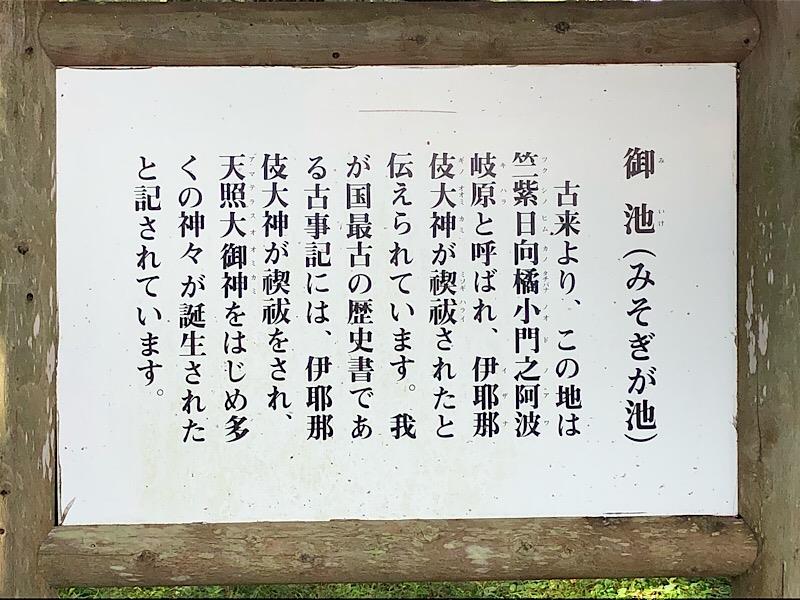 御池(みそぎが池)
古来より、この地は
竺紫日向橘小門之阿波
岐原と呼ばれ、伊耶那
伎大神が禊祓されたと
伝えられています。我
が国最古の歴史書であ
る古事記には、伊耶那
伎大神が禊祓をされ、
天照大御神をはじめ多
くの神々が誕生された
と記されています。